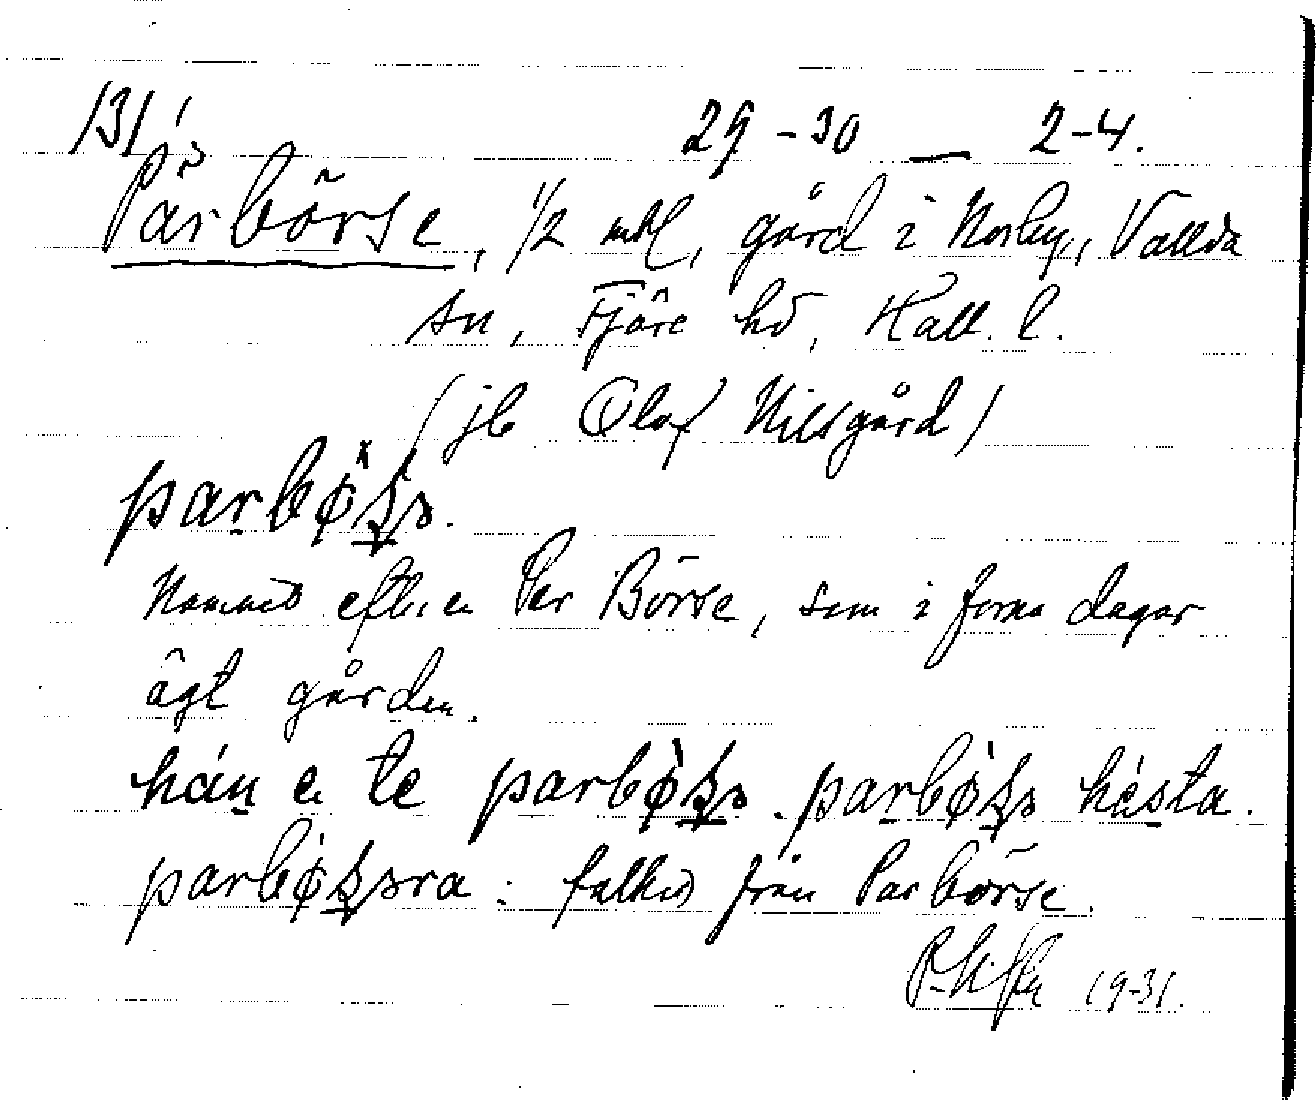 131. 29-30 — 2-4.
Pärbörse, 1/2 mtl, gård i Norby, Vallda
sn, Fjäre hd, Hall. l.
(jb Olof Nilsgård)
parbøʂə.
Namnet efter en Per Börse, som i forna dagar
ägt gården.
hán e te parbø̀ʂə. parbø̀ʂə hèsta.
parbø̀ʂəra: folket från Parbörse.
1931.